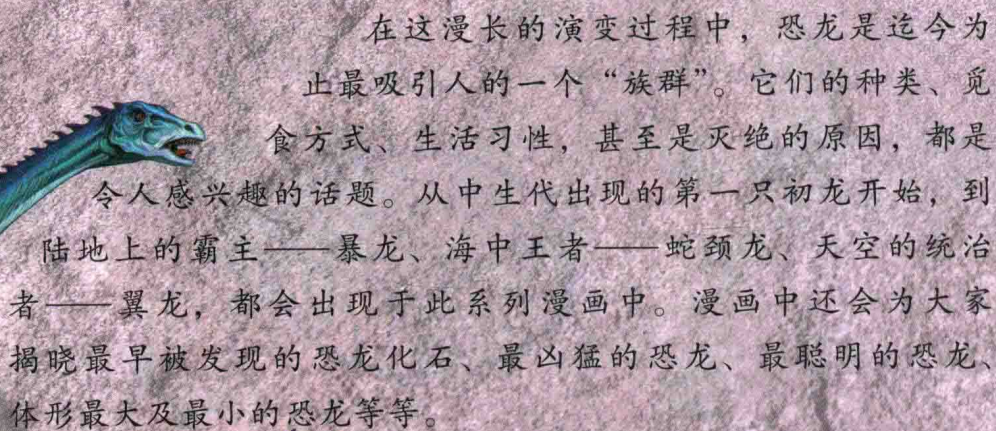 在这漫长的演变过程中，恐龙是迄今为
止最吸引人的一个“族群”。它们的种类、觅
食方式、生活习性，甚至是灭绝的原因，都是
令人感兴趣的话题。从中生代出现的第一只初龙开始，到
陆地上的霸主——暴龙、海中王者——蛇颈龙、天空的统治
者——翼龙，都会出现于此系列漫画中。漫画中还会为大家
揭晓最早被发现的恐龙化石、最凶猛的恐龙、最聪明的恐龙、
体形最大及最小的恐龙等等。